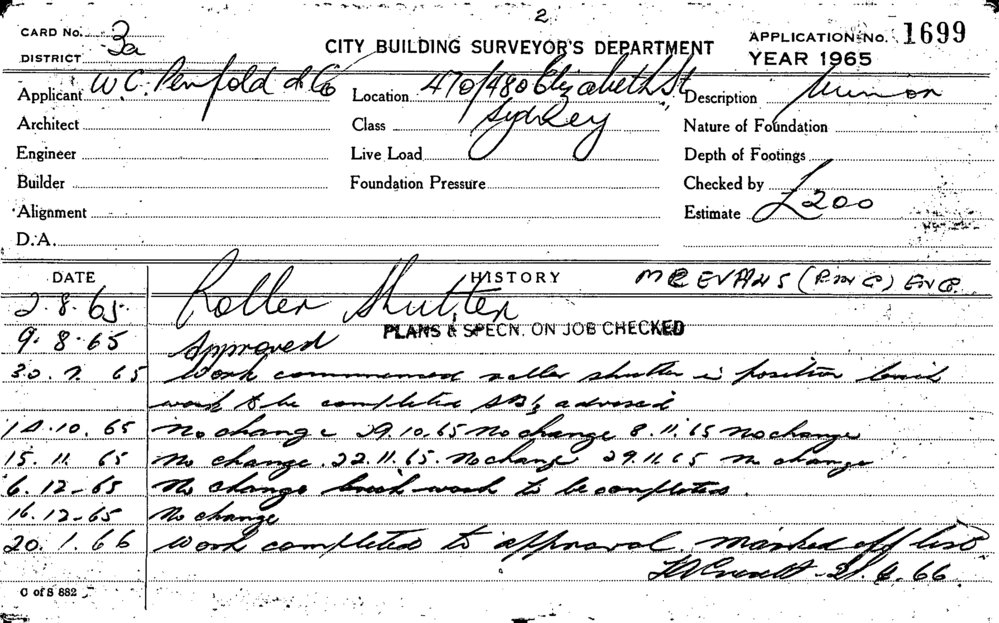 2
CARD No. 3a
DISTRICT
CITY BUILDING SURVEYOR'S DEPARTMENT
APPLICATION No. 1699
YEAR 1965
Applicant W. C. Penfold & Co Location 470/480 Elizabeth St Description Minor
Architect Class Sydney Nature of Foundation
Engineer Live Load Depth of Footings
Builder Foundation Pressure Checked by
Alignment Estimate £200
D.A.
DATE HISTORY MR EVANS
2.8.65. Roller Shutter
PLANS & SPECN. ON JOB CHECKED
9.8.65 Approved
65 Work commenced roller shutter in position brick
work to be completed advised
10.65 No change 29.10.65 No change 8.11.65 No change
15.11.65 No change. 22.11.65. No change 29.11.65 No change
6.12-65 No change brick work to be completed.
16.12-65 No change
20.1.66 Work completed to approval. marked off list
66
C of S 882